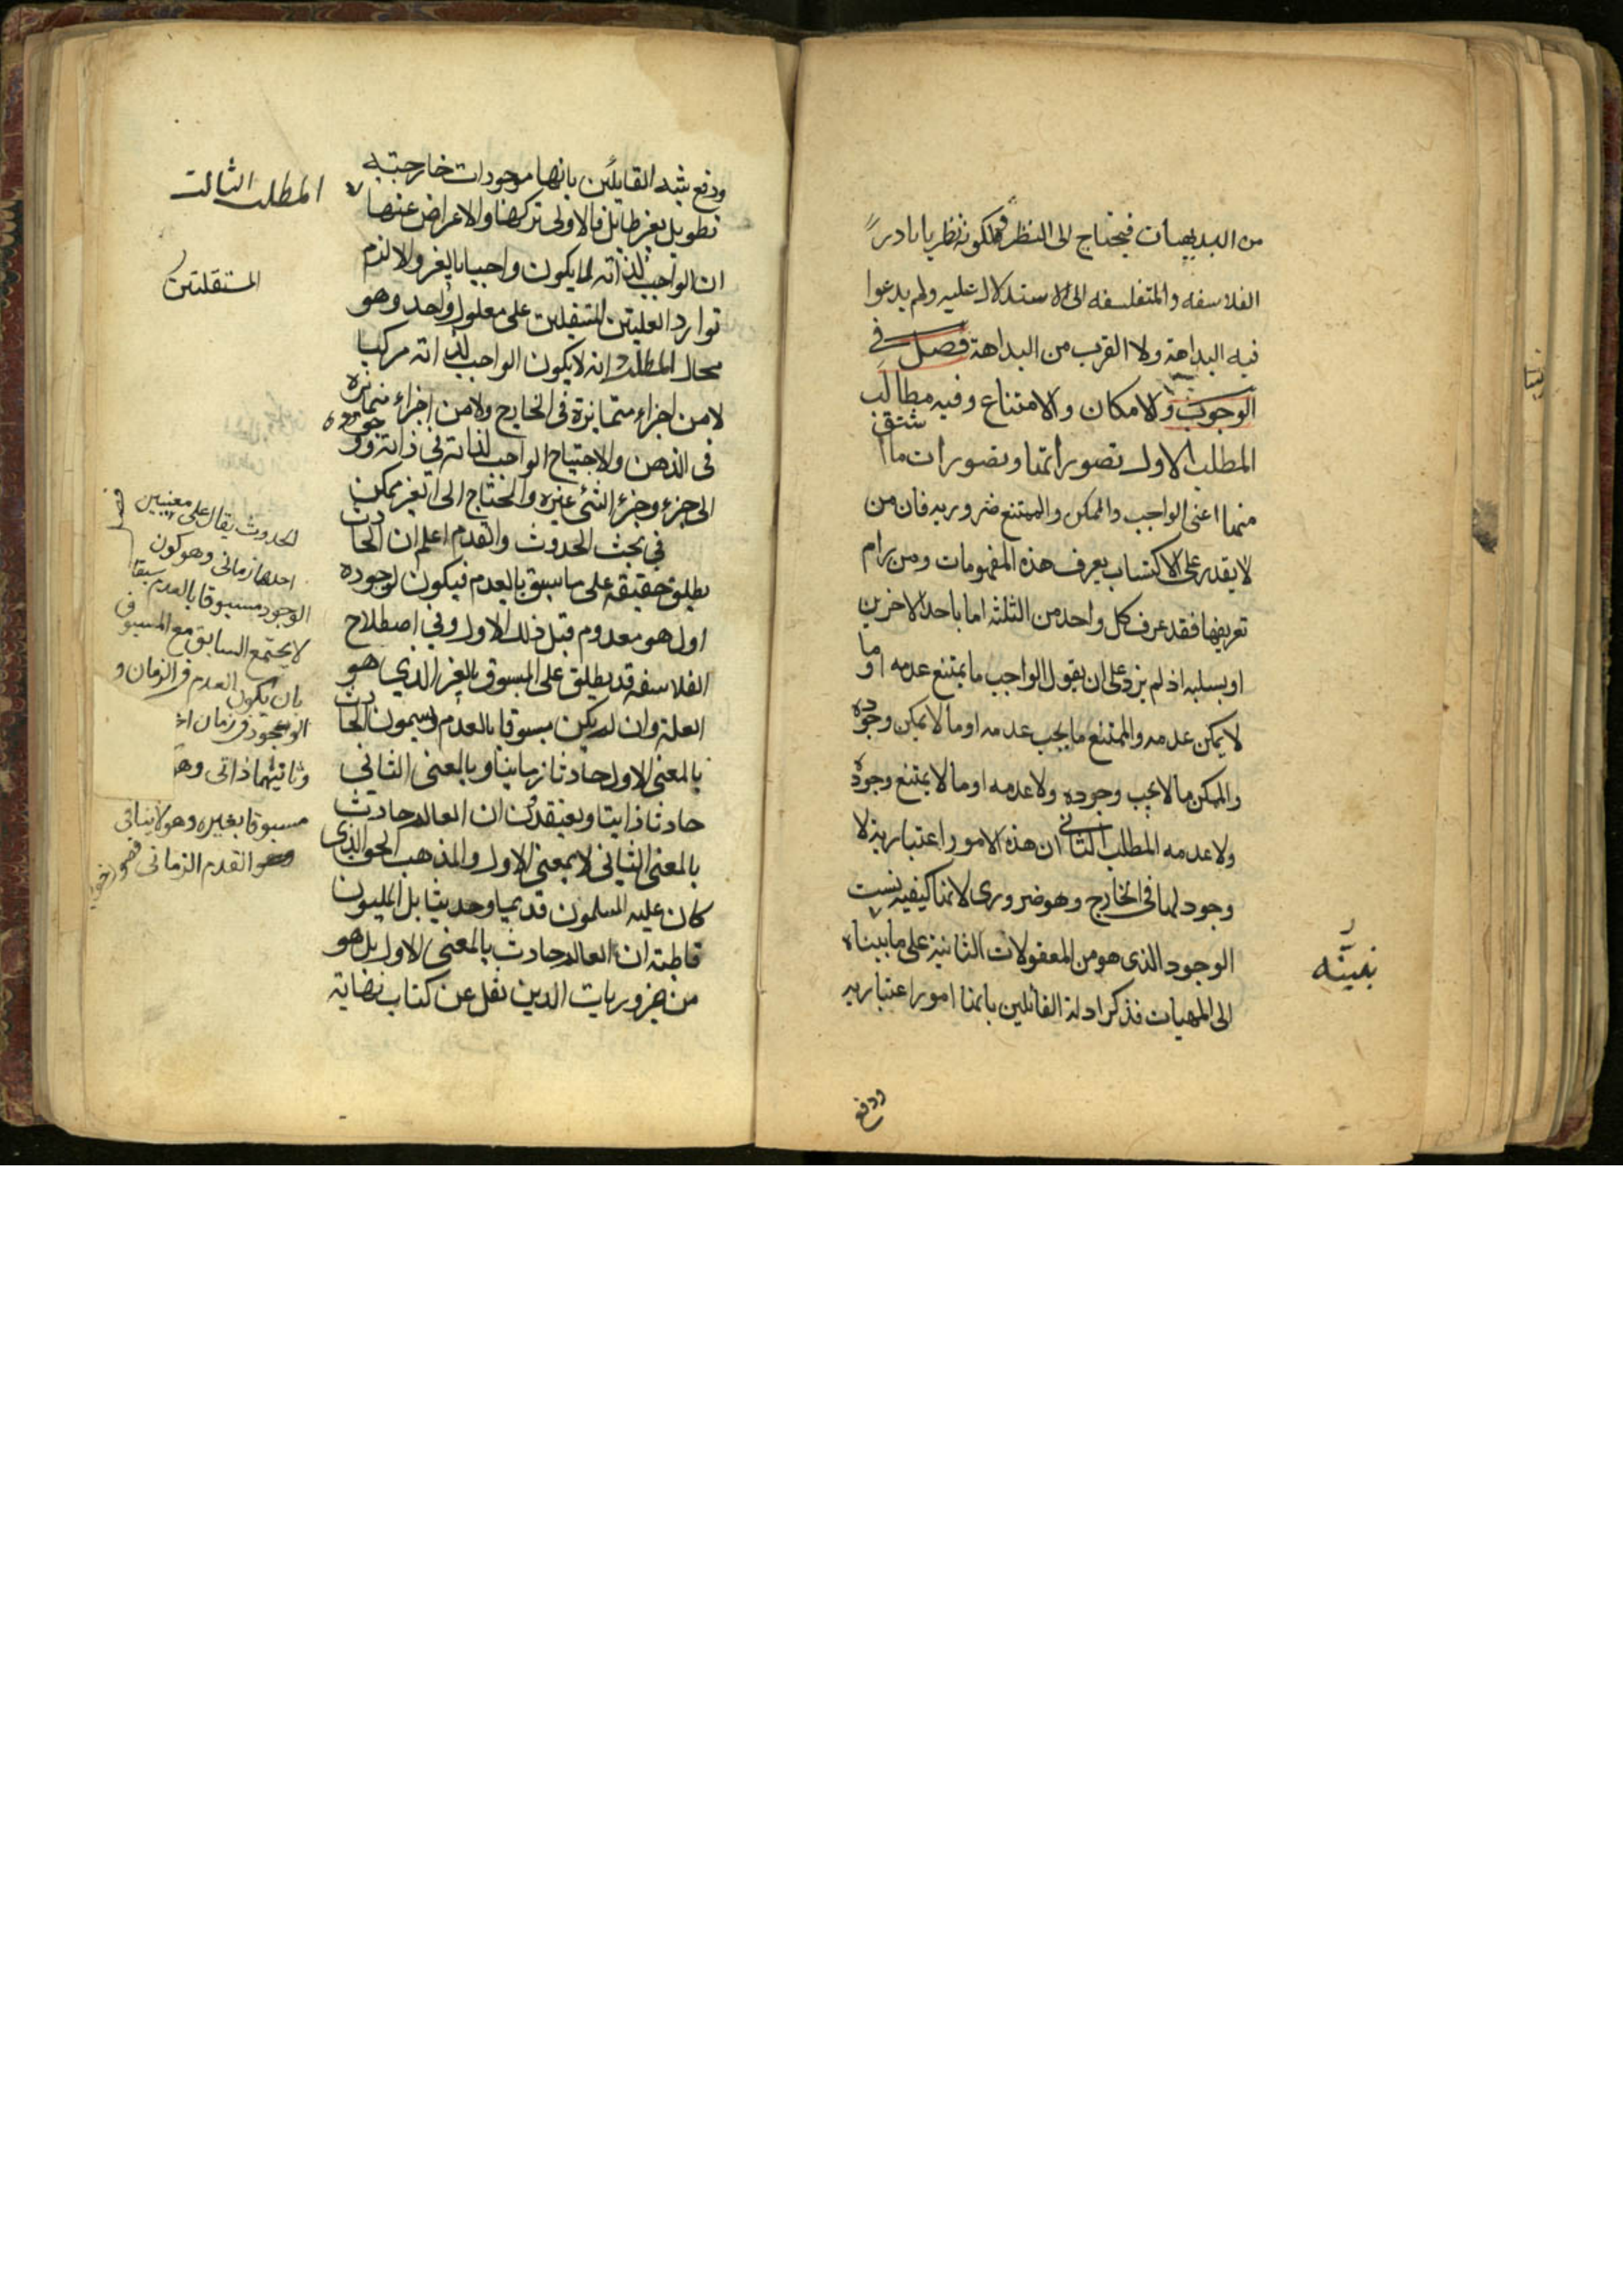 من البديهيات فيحتاج الى النظر فلكونه نظريا بادر
الفلاسفه والمتفلسفه الى الاستدلال عليه ولم يدعوا
فيه البداهة ولا القرب من البداهة فصل في
الوجوب والامكان والامتناع وفيه مطالب
المطلب الاول تصوراتها وتصورات ما اشتق
منها اعنى الواجب والممكن والممتنع ضروريه فان من
لا يقدر على الاكتساب يعرف هذه المفهومات ومن رام
تعريفها فقد عرف كل واحد من الثلثه اما باحد الاخرين
او بسلبه اذ لم يزد على ان يقول الواجب ما يمتنع عدمه او ما
لا يمكن عدمه والممتنع ما يجب عدمه او ما لا يمكن وجوده
والممكن ما لا يجب وجوده ولا عدمه او ما لا يمتنع وجوده
ولا عدمه المطلب الثانى ان هذه الامور اعتبارية لا
وجود لها فى الخارج وهو ضرورى لانها كيفيه نسبت
الوجود الذى هو من المعقولات الثانية على ما بيناه
الى المهيات فذكر ادلة القائلين بانها امور اعتباريه
ودفع
ودفع شبه القايلين بانها موجودات خارجيه
تطويل بغير طايل فالاولى تركها والاعراض عنها
المطلب الثالث
ان الواجب لذاته لما يكون واجبا بالغير والا لزم
توارد العلتين المستقلين على معلول واحد وهو
المستقلتين
محال المطلب انه لا يكون الواجب لذاته مركبا
لا من اجزاء متمايزة فى الخارج ولا من اجزاء متمايزه
فى الذهن والا حتياج الواجب لذاته فى ذاته ووجوده
الى جزء وجزء الشئ غيره والمحتاج الى الغير ممكن
فى بحث الحدوث والقدم اعلم ان الحادث
يطلق حقيقه على ما سبق بالعدم فيكون لوجوده
اول هو معدوم قبل ذلك الاول وفى اصطلاح
الفلاسفه قد يطلق على المسبوق بالغير الذي هو
العلة وان لم يكن مسبوقا بالعدم ويسمون الحادث
بالمعنى الاول حادثا زمانيا وبالمعنى الثانى
حادثا ذاتيا ويعتقدون ان العالم حادث
بالمعنى الثانى لا بمعنى الاول والمذهب الحق الذى
كان عليه المسلمون قديما وحديثا بل المليون
قاطبة ان العالم حادث بالمعنى الاول بل هو
من ضروريات الدين نقل عن كتاب نهاية
فصل
الحدوث يقال على معنيين
احدهما زمانى وهو كون
الوجود مسبوقا بالعدم سبقا
لا يجتمع السابق مع المسبوق
بان يكون العدم فى الزمان و
الوجود فى زمان
وثانيهما ذاتى وهو
مسبوقا بغيره وهو لا ينافى
القدم الزمانى